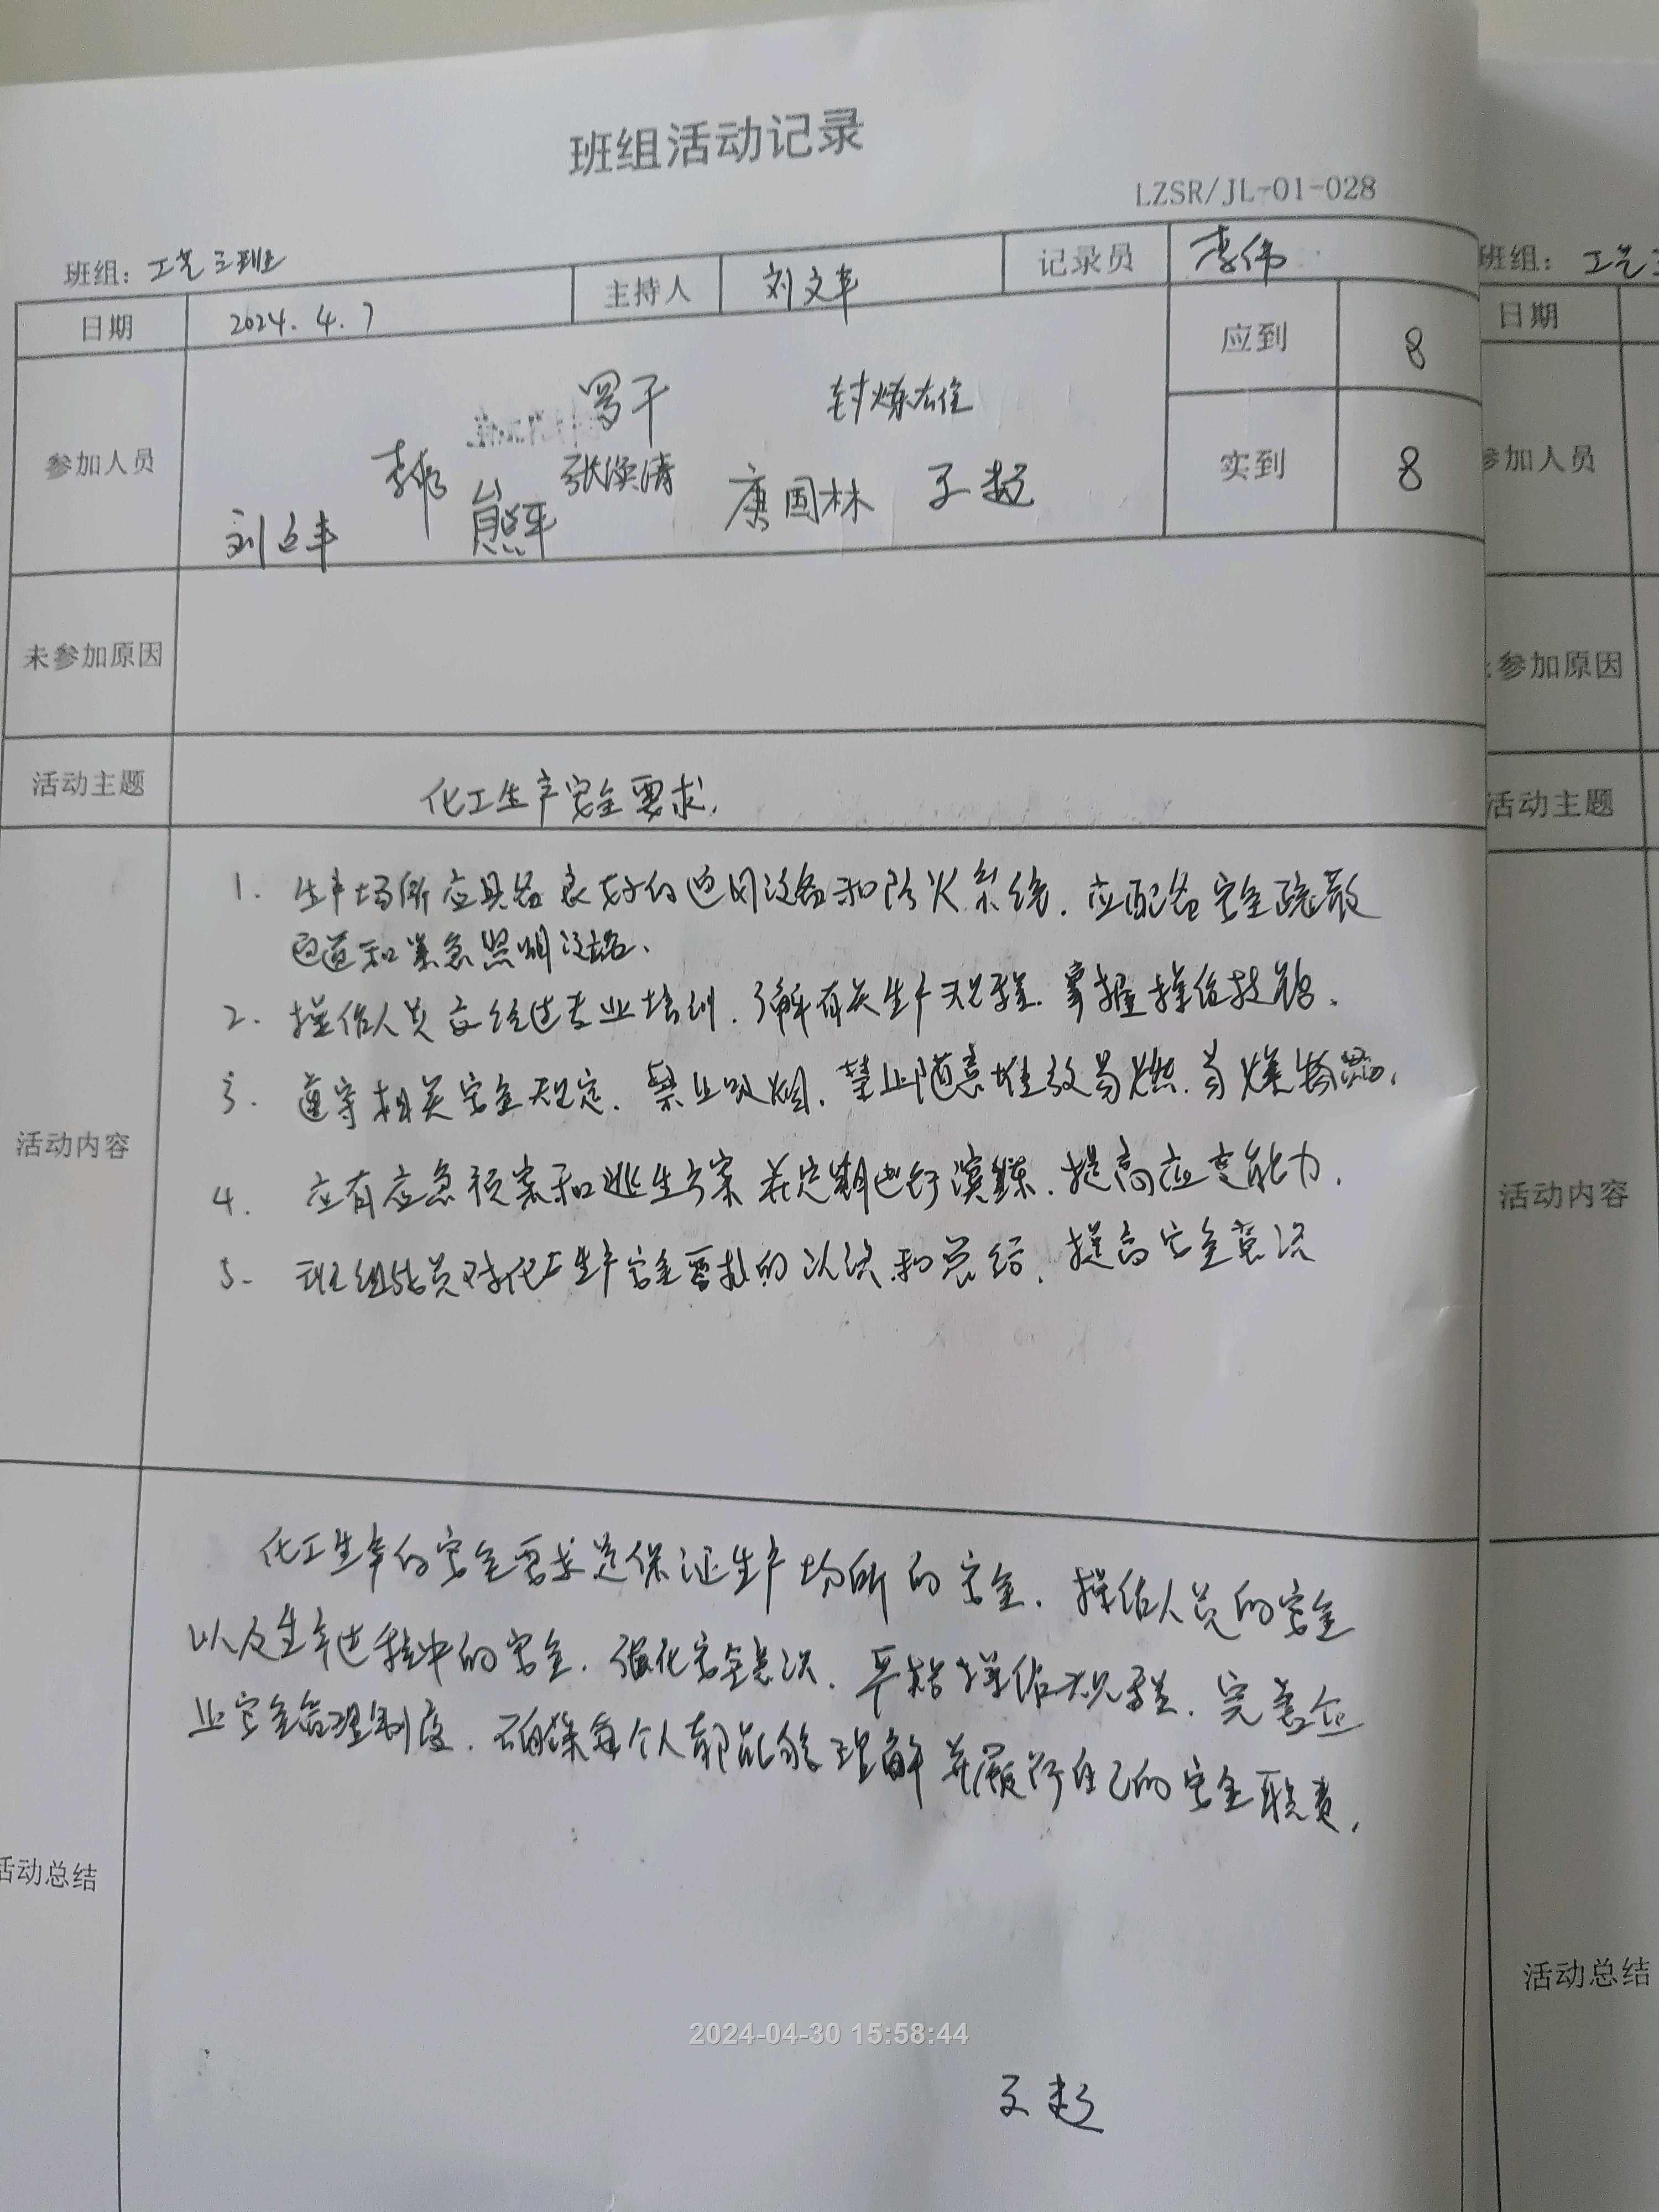 班组活动记录
LZSR/JL-01-028
班组：工艺三班
日期 2024.4.7 主持人 刘文丰 记录员 李伟
应到 8
参加人员 罗干 封炼雄
李伟 熊平 张焕清 康国林 王超
刘文丰
实到 8
未参加原因
活动主题 化工生产安全要求.
活动内容
1. 生产场所应具备良好的通风设备和防火系统. 应配备安全疏散
通道和紧急照明设施.
2. 操作人员应经过专业培训. 了解有关生产规程. 掌握操作技能.
3. 遵守相关安全规定. 禁止吸烟. 禁止随意堆放易燃.易爆物品.
4. 应有应急预案和逃生方案并定期进行演练. 提高应变能力.
5. 班组成员对化工生产安全要求的认识和总结. 提高安全意识
活动总结
化工生产的安全要求是保证生产场所的安全. 操作人员的安全
以及生产过程中的安全. 强化安全意识. 严格操作规程. 完善企
业安全管理制度. 确保每个人都能够理解并履行自己的安全职责.
王超
2024-04-30 15:58:44
班组：工艺三
日期
参加人员
参加原因
活动主题
活动内容
活动总结